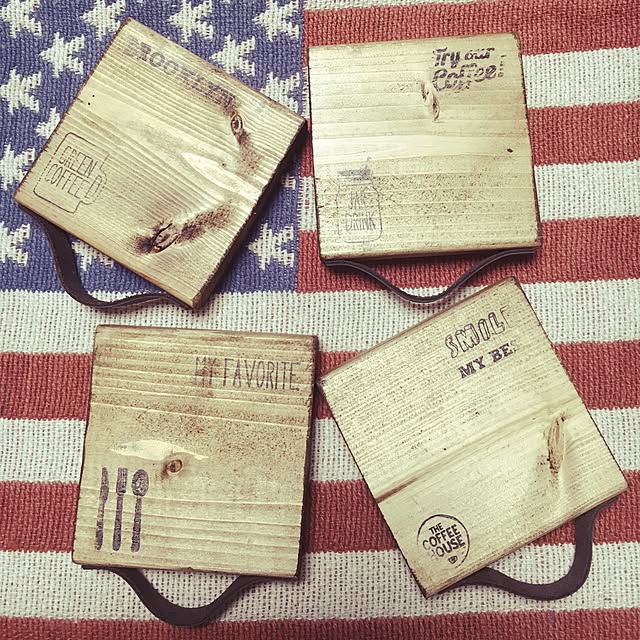 BROOKLYN
GREEN
COFFEE
Try our
Coffee!
JAR
DRINK
MY FAVORITE
SMILE
MY BE
THE
COFFEE
HOUSE